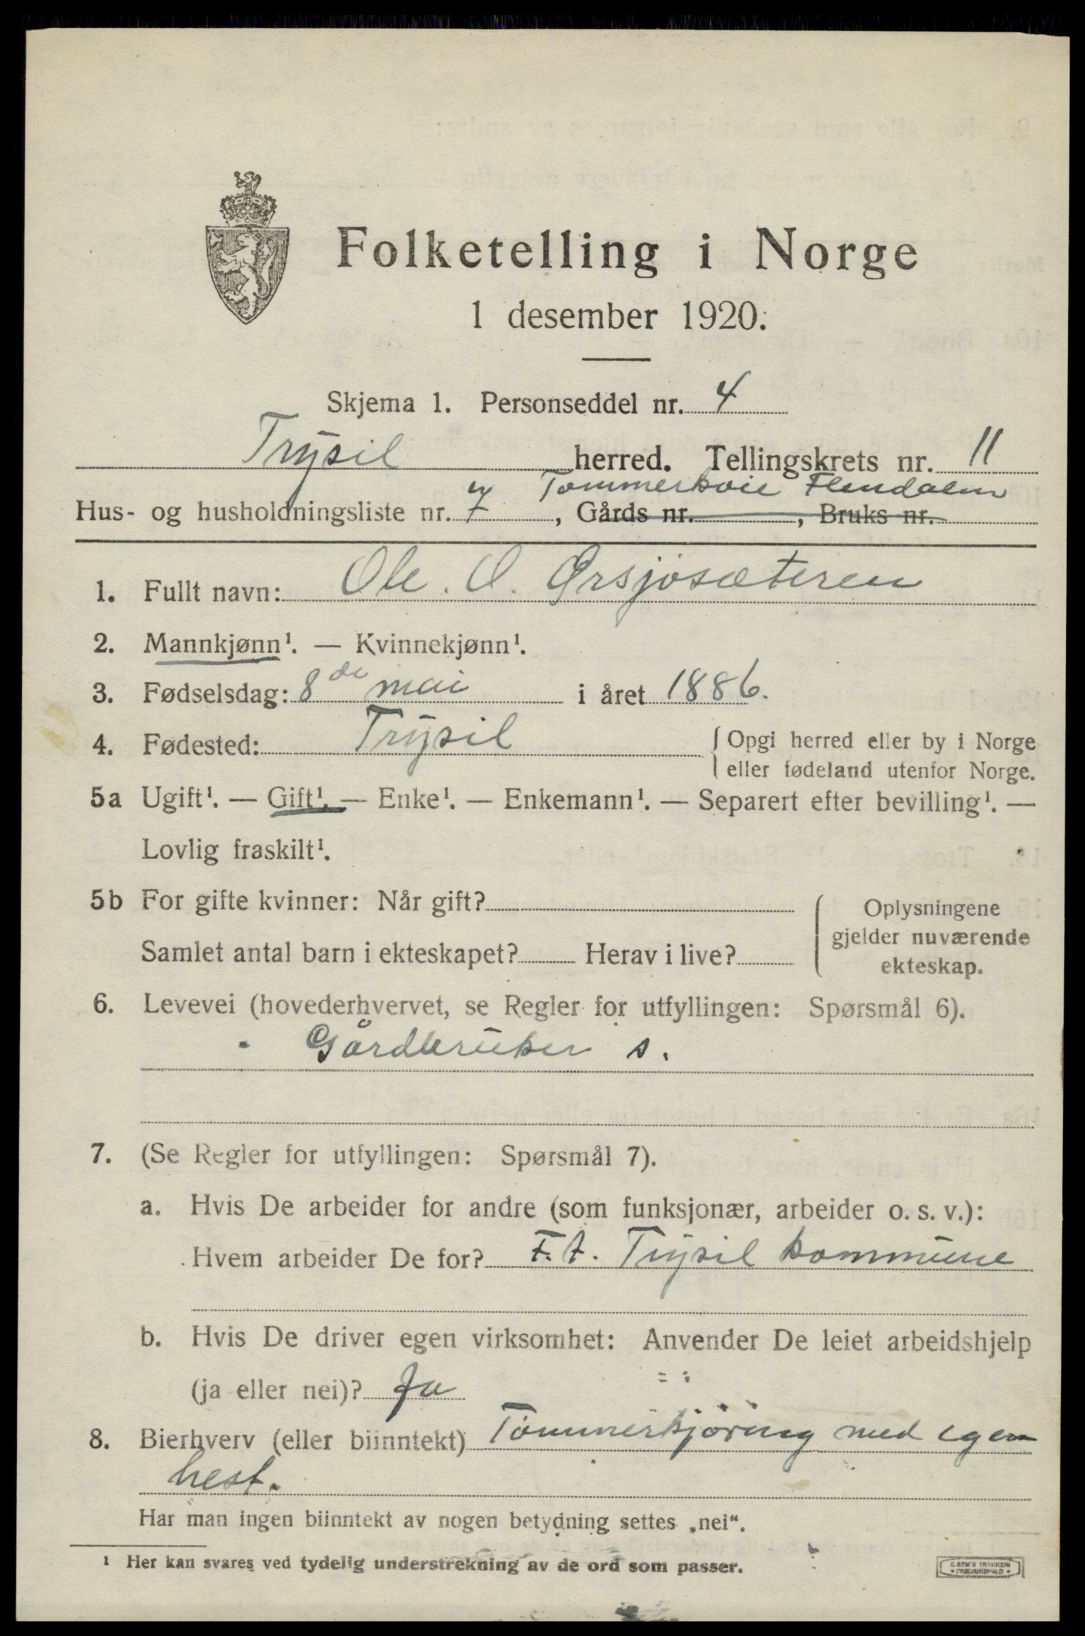 Folketelling i Norge
1 desember 1920.
Skjema 1. Personseddel nr. 4
Trysil herred. Tellingskrets nr. 11
Tømmerkoie Flendalen
Hus- og husholdningsliste nr. 7, Gårds nr. , Bruks nr.
1. Fullt navn: Ole. O. Ørsjøsæteren
2. Mannkjønn¹. — Kvinnekjønn¹.
3. Fødselsdag: 8de mai i året 1886.
4. Fødested: Trysil { Opgi herred eller by i Norge
eller fødeland utenfor Norge.
5a Ugift¹. — Gift¹. — Enke¹. — Enkemann¹. — Separert efter bevilling¹. —
Lovlig fraskilt¹.
5b For gifte kvinner: Når gift?
Samlet antal barn i ekteskapet? Herav i live?
{ Oplysningene
gjelder nuværende
ekteskap.
6. Levevei (hovederhvervet, se Regler for utfyllingen: Spørsmål 6).
Gårdbruker s.
7. (Se Regler for utfyllingen: Spørsmål 7).
a. Hvis De arbeider for andre (som funksjonær, arbeider o. s. v.):
Hvem arbeider De for? F. t. Trysil kommune
b. Hvis De driver egen virksomhet: Anvender De leiet arbeidshjelp
(ja eller nei)? Ja
8. Bierhverv (eller biinntekt) Tømmerkjøring med egen
hest.
Har man ingen biinntekt av nogen betydning settes „nei“.
¹ Her kan svares ved tydelig understrekning av de ord som passer.